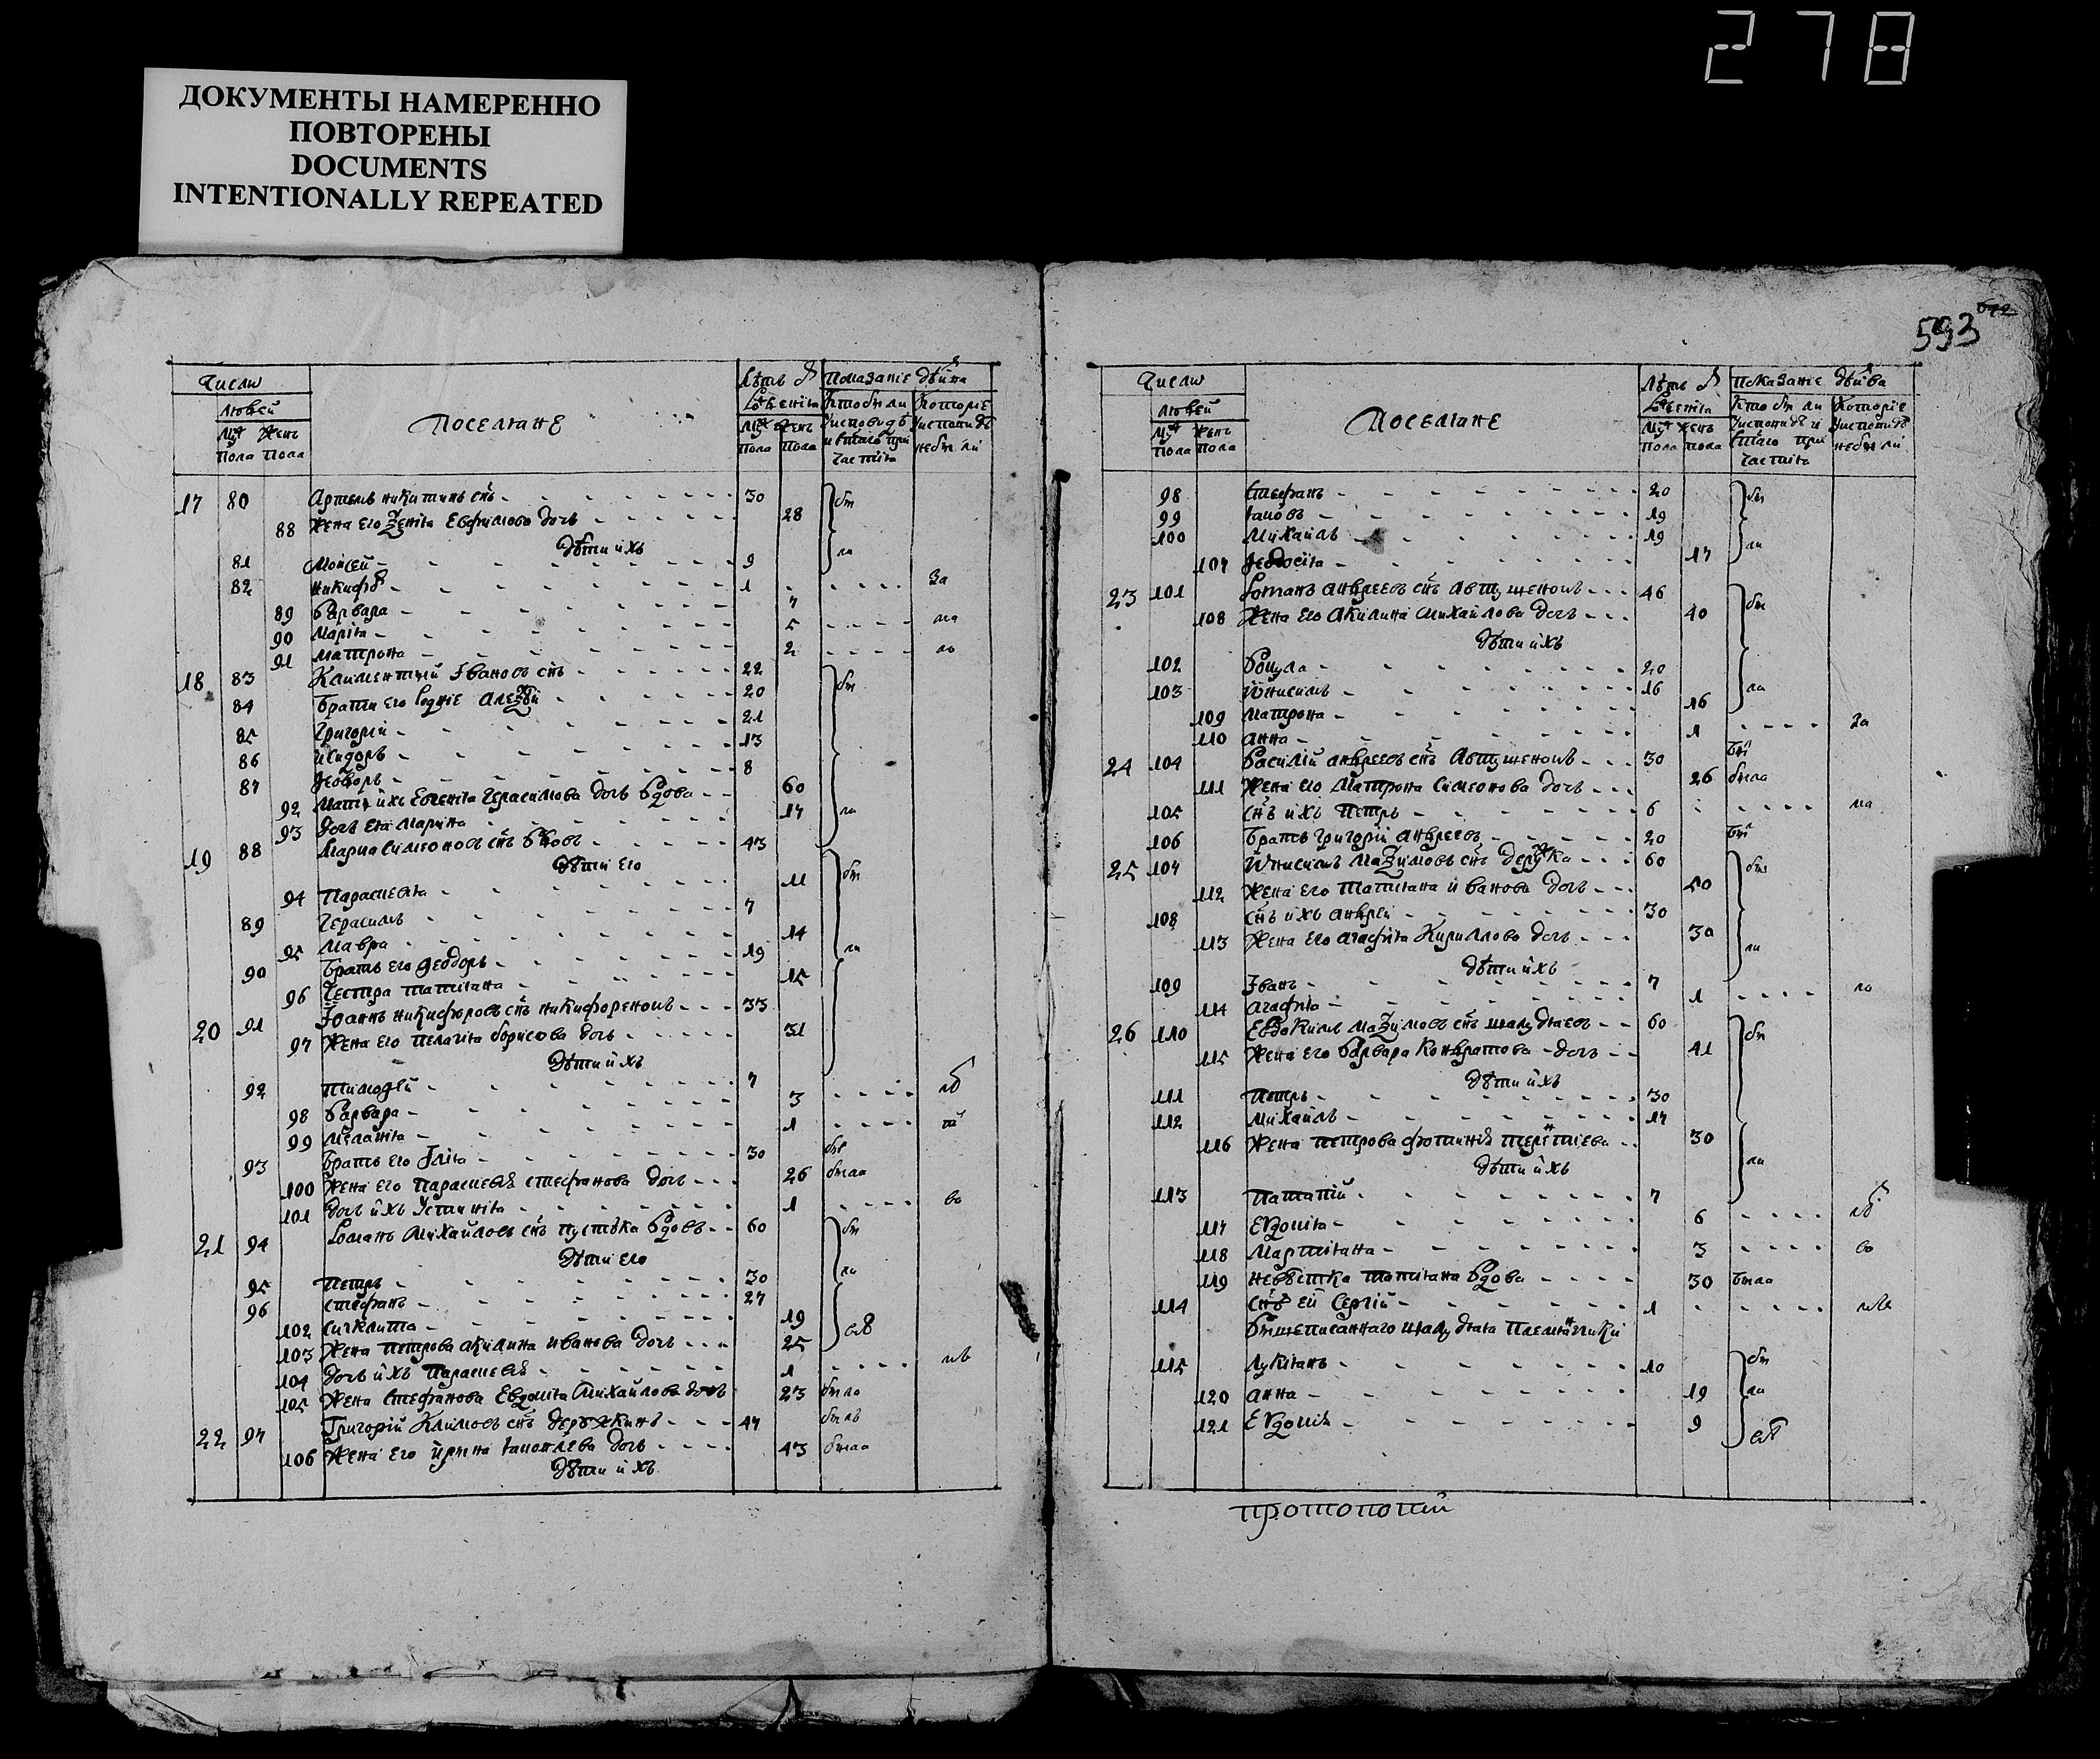 278
ДОКУМЕНТЫ НАМЕРЕННО
ПОВТОРЕНЫ
DOCUMENTS
INTENTIONALLY REPEATED
593
Числѡ
Людей
Пола Пола
Поселяне
Лѣтъ ѿ
Показаніе дѣйва
Пола Пола
17 80 Артемъ никитинъ снъ 30
88 Жена его Ѯенія Евфимова дочь 28 бы
Дѣти ихъ
81 Мойсей 9 ли
82 никифѡ 1 за
89 Варвара 7
90 Марія 5 ма
91 Матрона 2 ло
18 83 Климентий Іванов снъ 22 бы
84 Брати его родніе Алеѯѣй 20
85 Григорій 21
86 исидоръ 13
87 Ѳеодоръ 8
92 Мати ихъ Евгенія Герасимова дочь Вдова 60
93 Дочь ея Марина 17 ли
19 88 Марко Симеоновъ снъ Вдов 43
Дѣти его
94 Параскевія 11 бы
89 Герасимъ 7
95 Мавра 14
90 Братъ его Ѳеодоръ 19 ли
96 Сестра татіана 15
20 91 Іоаннъ никифоровъ снъ никифоренокъ 33
97 Жена его Пелагія борисова дочь 31
Дѣти ихъ
92 Тимоѳей 7
98 Варвара 3 лѣ
99 Меланія 1
93 Братъ его Ілія 30 бы
100 Жена его Параскевія стефанова дочь 26 была
101 Дочь ихъ Устинія 1 во
21 94 Романъ Михайловъ снъ пустѣка Вдовъ 60 бы
Дѣти его
95 Петръ 30 ли
96 Стефанъ 27
102 Сигклита 19
103 Жена Петрова акилина иванова дочь 25
104 Дочь ихъ Параскевія 1
105 Жена Стефанова Евдокія Михайлова дочь 23 была
22 97 Григорій Климовъ снъ держкинъ 47 былъ
106 Жена его ирина Іаковлева дочь 43 была
Дѣти ихъ
Числѡ
Людей
Пола Пола
Поселяне
Лѣтъ ѿ
Показаніе дѣйва
Пола пола
98 Стефанъ 20 бы
99 Іаковъ 19
100 Михаилъ 19
107 Ѳеодосія 17 ли
23 101 Романъ андреевъ снъ Автушенокъ 46
108 Жена его Акилина Михайлова дочь 40 бы
Дѣти ихъ
102 Вокула 20
103 Ѡнисимъ 16 ли
109 Матрона 16
110 анна 1 за
24 104 Василій андреевъ снъ Автушенокъ 30
111 Жена его Матрона Симеонова дочь 26 была
105 Снъ ихъ Петръ 6 ма
106 Братъ Григорій андреевъ 20
25 107 Ѡнисимъ Маѯимовъ снъ держка 60 бы
112 Жена его татіана иванова дочь 50
108 Снъ ихъ андрей 30
113 Жена его агафія Кириллова дочь 30 ли
Дѣти ихъ
109 Іванъ 7
114 агафія 1 ло
26 110 Евдокимъ Маѯимовъ снъ шалудтаевъ 60 бы
115 Жена его Варвара Кондратова дочь 41
Дѣти ихъ
111 Петръ 30
112 Михайлъ 17
116 Жена петрова фотинія терентіева 30
Дѣти ихъ ли
113 Патапій 7
117 Евдокія 6 лѣ
118 Мартіана 3 во
119 невѣстка татіана Вдова 30 была
114 Снъ ей Сергій 1
Вышеписаннаго шалудтая племяники
115 Лукіанъ 10 бы
120 анна 19 ли
121 Евдокія 9
протопопій